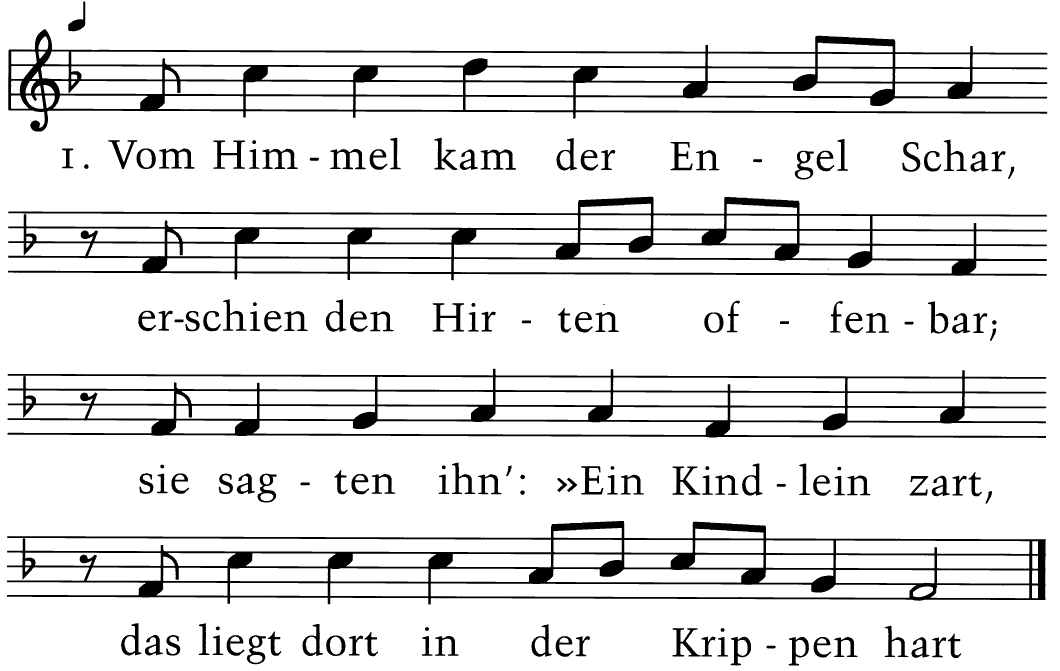 1. Vom Him - mel kam der En - gel Schar,
er-schien den Hir - ten of - fen - bar;
sie sag - ten ihn’: »Ein Kind - lein zart,
das liegt dort in der Krip - pen hart